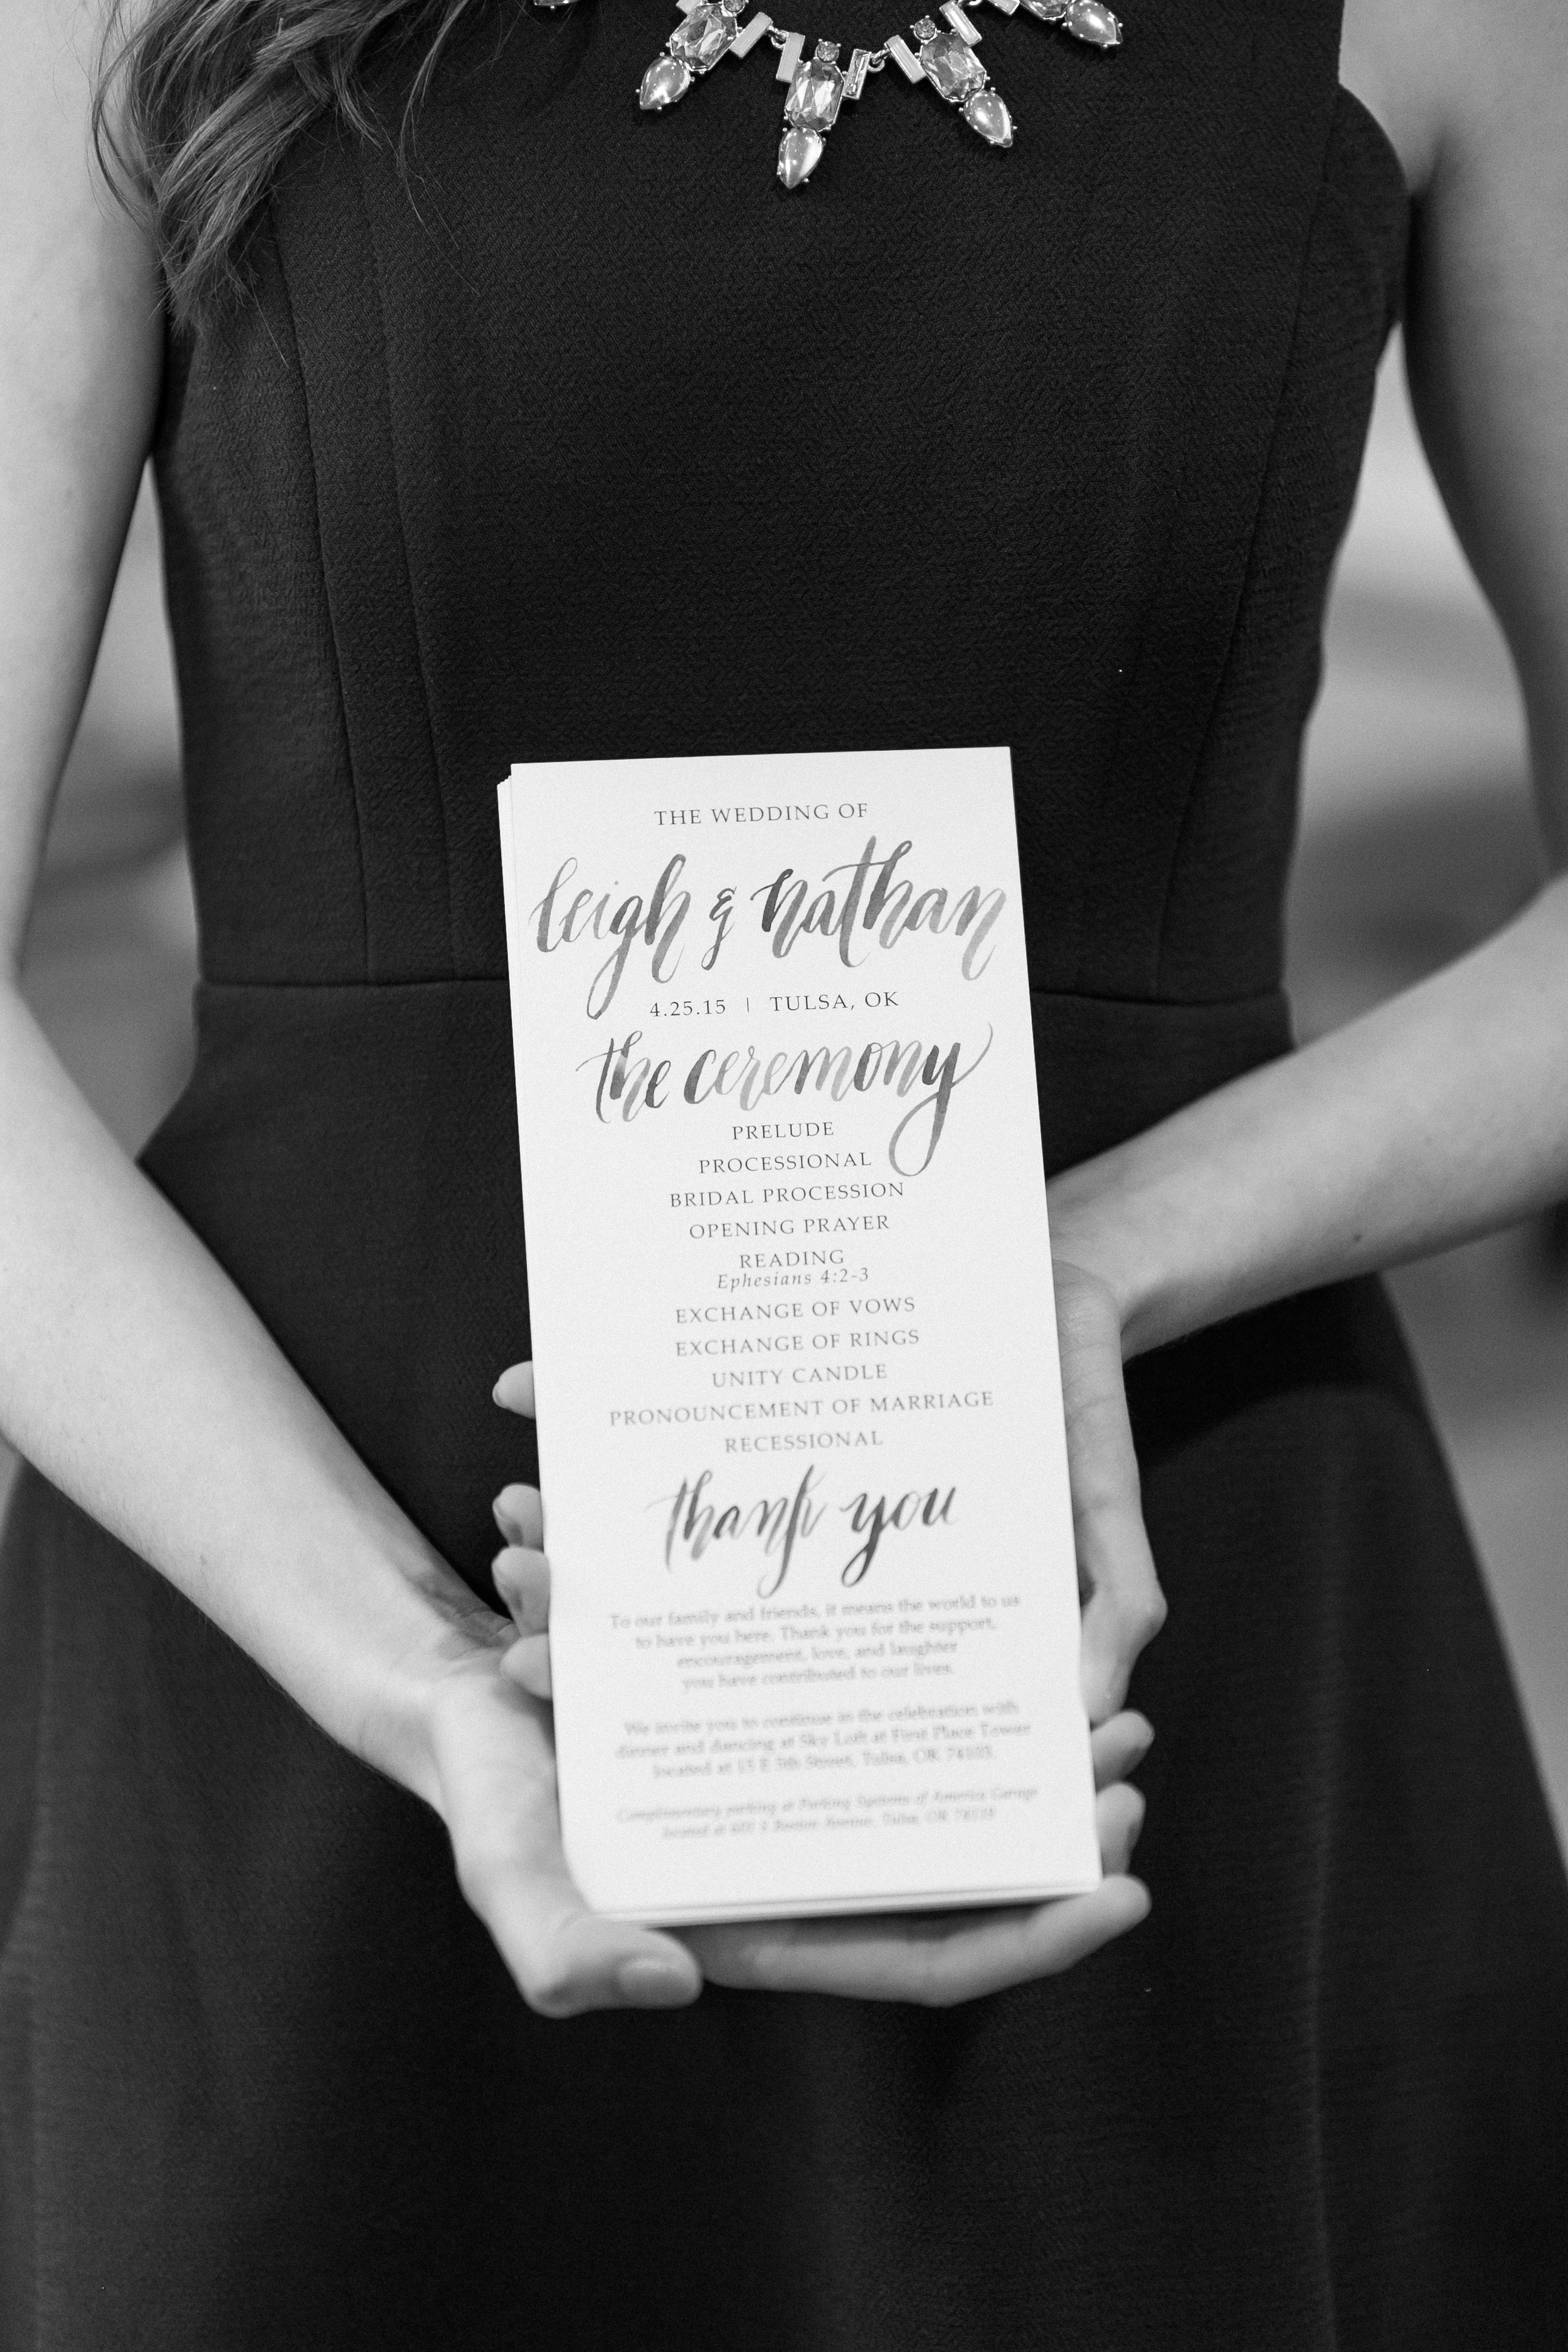 THE WEDDING OF
leigh & nathan
4.25.15 | TULSA, OK
the ceremony
PRELUDE
PROCESSIONAL
BRIDAL PROCESSION
OPENING PRAYER
READING
Ephesians 4:2-3
EXCHANGE OF VOWS
EXCHANGE OF RINGS
UNITY CANDLE
PRONOUNCEMENT OF MARRIAGE
RECESSIONAL
thank you
To our family and friends, it means the world to us
to have you here. Thank you for the support,
encouragement, love, and laughter
you have contributed to our lives.
We invite you to continue in the celebration with
dinner and dancing at Sky Loft at First Place Tower
located at 15 E 5th Street, Tulsa, OK 74103.
Complimentary parking at Parking Systems of America Garage
located at Boston Avenue, Tulsa, OK